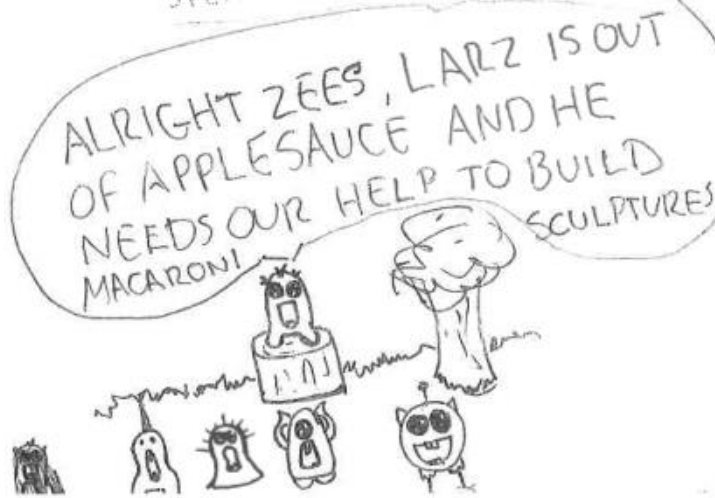 ALRIGHT ZEES, LARZ IS OUT
OF APPLESAUCE AND HE
NEEDS OUR HELP TO BUILD
MACARONI SCULPTURES